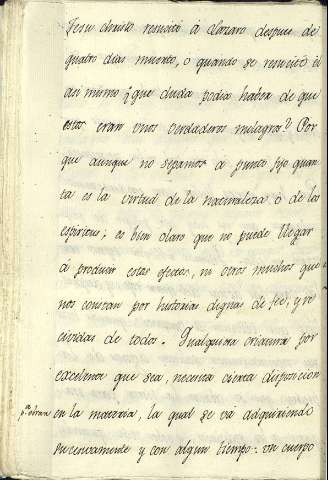 Jesu christo resucitó à Lazaro despues de
quatro dias muerto, o quando se resucitó à
asi mismo ¿que duda podia haber de que
estos eran unos verdaderos milagros? Por
que aunque no sepamos a punto fijo quan
ta es la virtud de la naturaleza ò de los
espiritus; es bien claro que no puede llegar
à producir estos efectos, ni otros muchos que
nos constan por historias dignas de feé, y re
civídas de todos. Qualquiera criatura por
excelente que sea, necesita cierta disposicion
pª obrar en la materia, la qual se vá adquiriendo
sucesivamente y con algun tiempo: un cuerpo